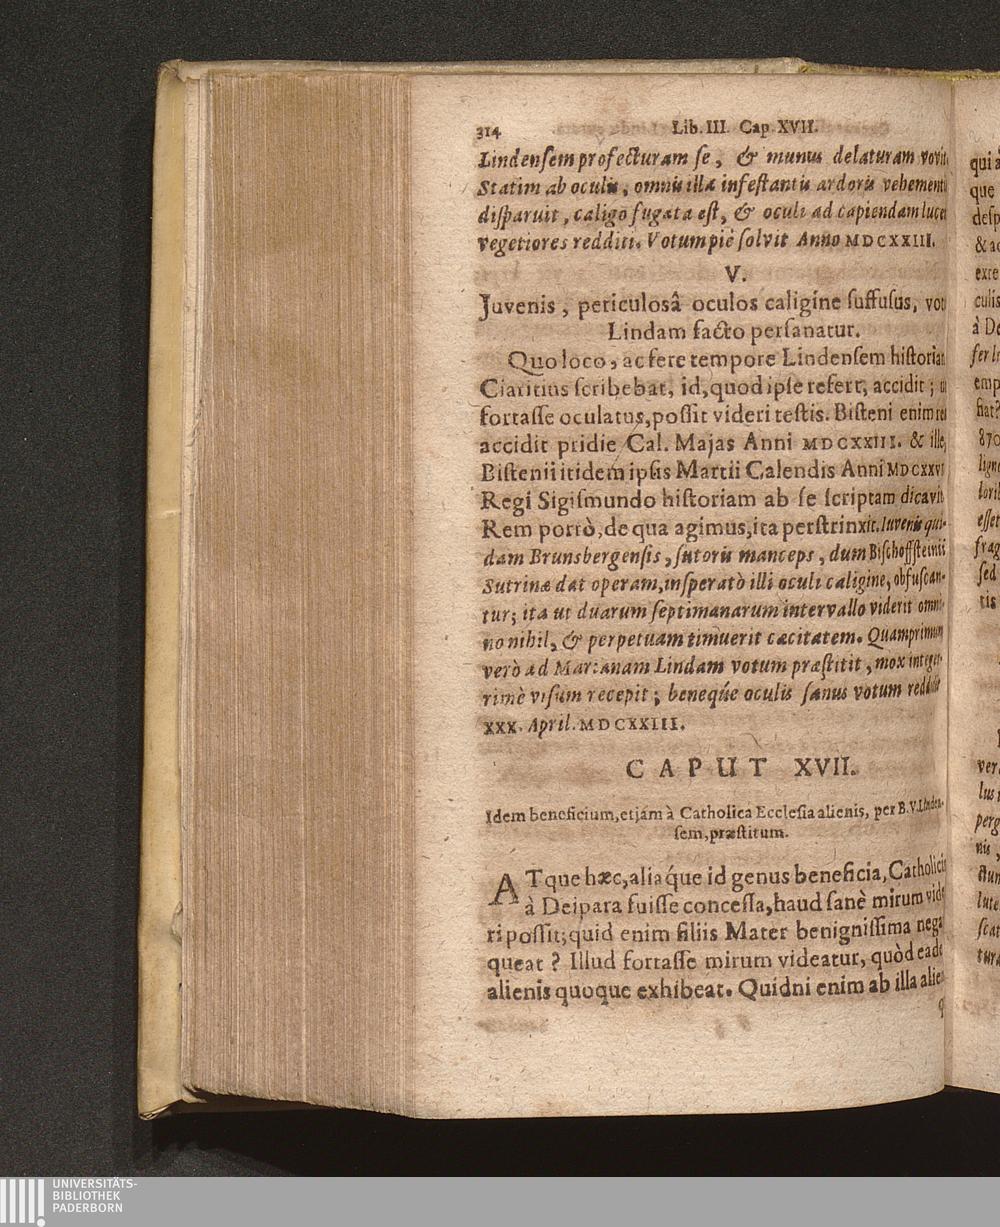 314 Lib. III. Cap. XVII.
Lindensem profecturam se, & munus delaturam
Statim ab oculis, omnis illa infestantis ardoris
disparuit, caligo fugata est, & oculi ad capiendam
vegetiores redditi. Votum piè solvit Anno MDCXXIII.
V.
Juvenis, periculosâ oculos caligine suffusus,
Lindam facto persanatur.
Quo loco, ac fere tempore Lindensem
Ciaritius scribebat, id, quod ipse refert, accidit;
fortasse oculatus, possit videri testis. Bisteni enim
accidit pridie Cal. Majas Anni MDCXXIII. & ille,
Bistenii itidem ipsis Martii Calendis Anni
Regi Sigismundo historiam ab se scriptam dicavit.
Rem porrò, de qua agimus, ita perstrinxit. Iuvenis qui-
dam Brunsbergensis, sutoris manceps, dum Bischoffsteinii
Sutrinæ dat operam, insperatò illi oculi caligine, obfuscan-
tur; ita ut duarum septimanarum intervallo viderit omni-
no nihil, & perpetuam timuerit cæcitatem. Quamprimum
verò ad Marianam Lindam votum præstitit, mox integer-
rimè visum recepit; beneq́ue oculis sanus votum reddidit
XXX. April. MDCXXIII.
CAPUT XVII.
Idem beneficium, etjam à Catholica Ecclesia alienis, per B.V. Linden-
sem, præstitum.
ATque hæc, aliaq́ue id genus beneficia,
à Deipara fuisse concessa, haud sanè mirum
ri possit; quid enim filiis Mater benignissima
queat? Illud fortasse mirum videatur, quòd
alienis quoque exhibeat. Quidni enim ab illa
qui
que
& ac
culis
à De
fer
emp
fiat?
870
essét
frag
sed
tis
ver
lus
perg
nis,
lute
scat
tur
UNIVERSITÄTS-
BIBLIOTHEK
PADERBORN